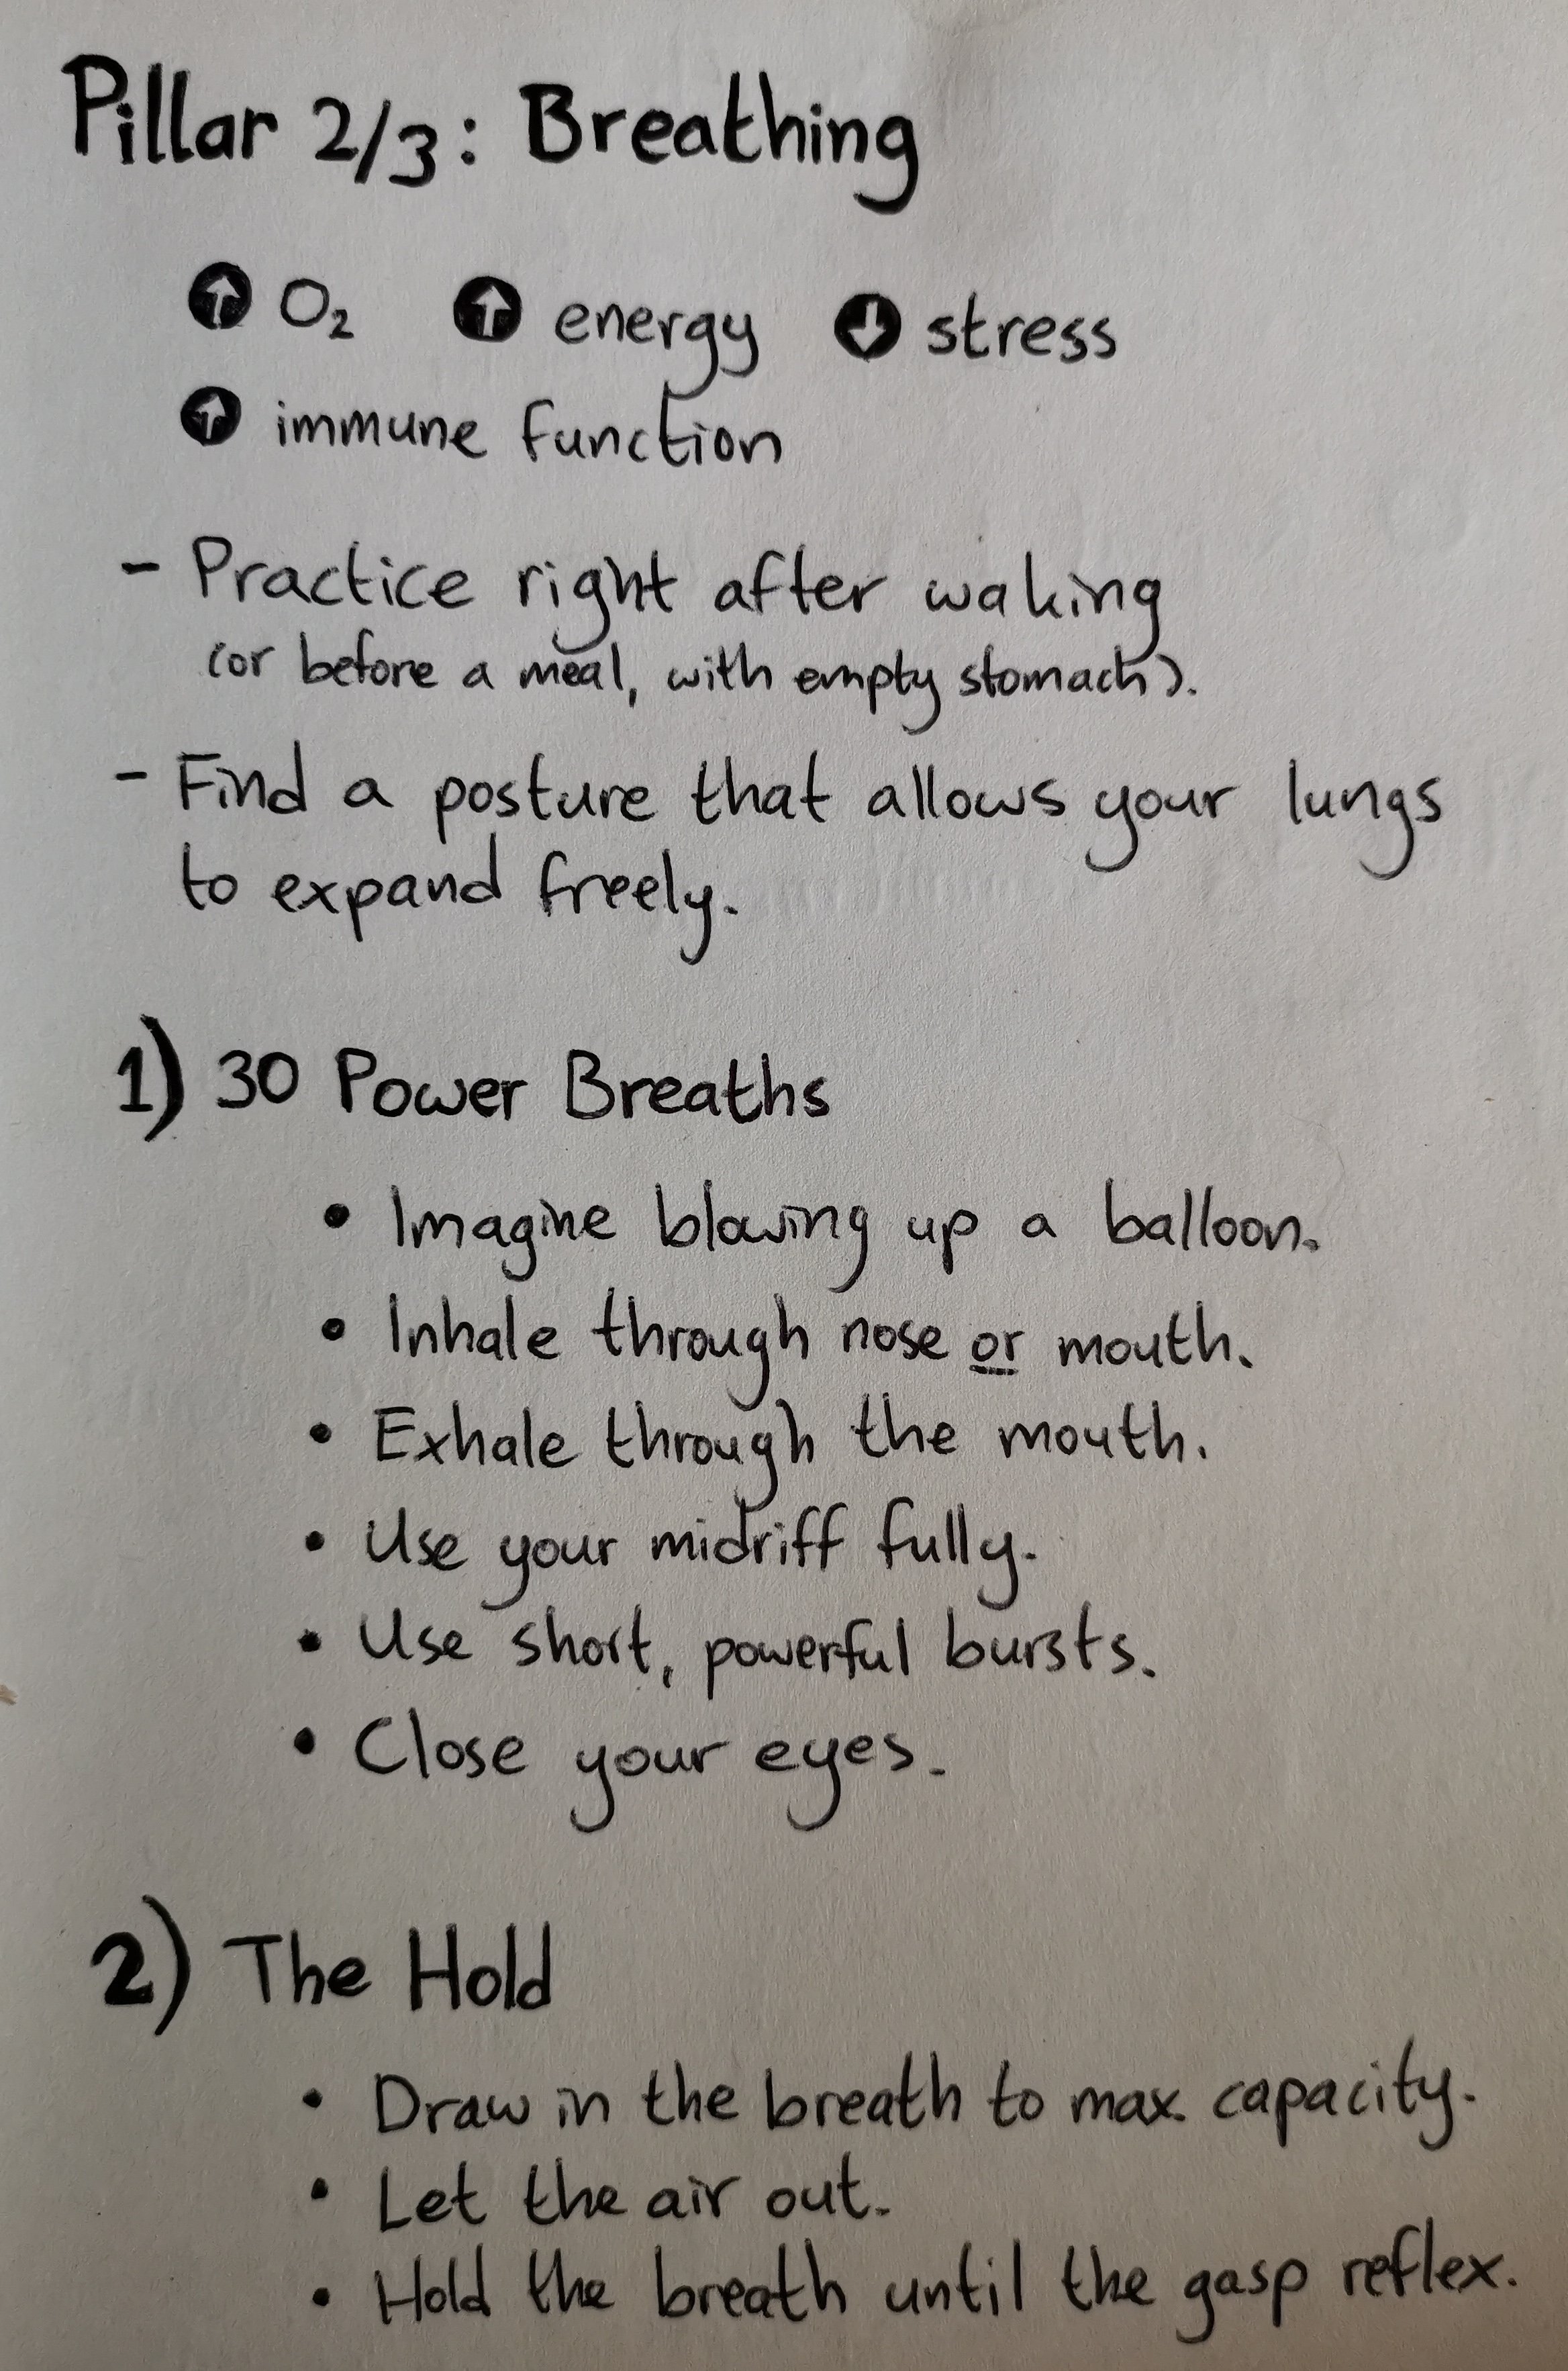 Pillar 2/3: Breathing
⬆ O₂ ⬆ energy ⬇ stress
⬆ immune function
- Practice right after waking
(or before a meal, with empty stomach).
- Find a posture that allows your lungs
to expand freely.
1) 30 Power Breaths
• Imagine blowing up a balloon.
• Inhale through nose or mouth.
• Exhale through the mouth.
• Use your midriff fully.
• Use short, powerful bursts.
• Close your eyes.
2) The Hold
• Draw in the breath to max. capacity.
• Let the air out.
• Hold the breath until the gasp reflex.